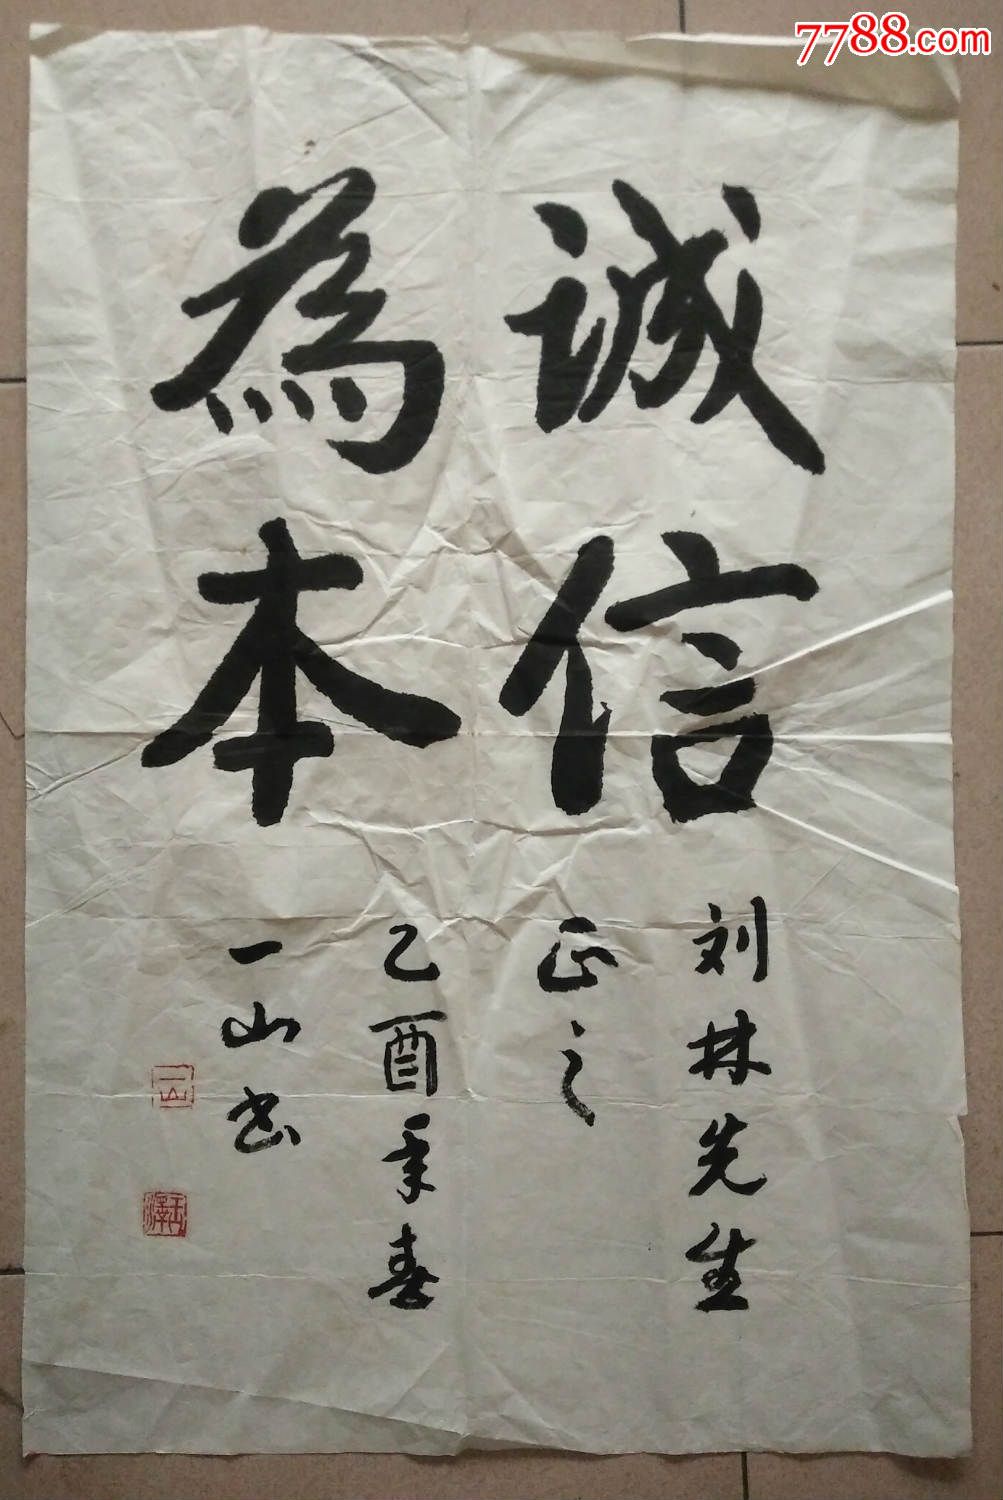 7788.com
誠信
為本
刘林先生
正之
乙酉年春
一山书
一山